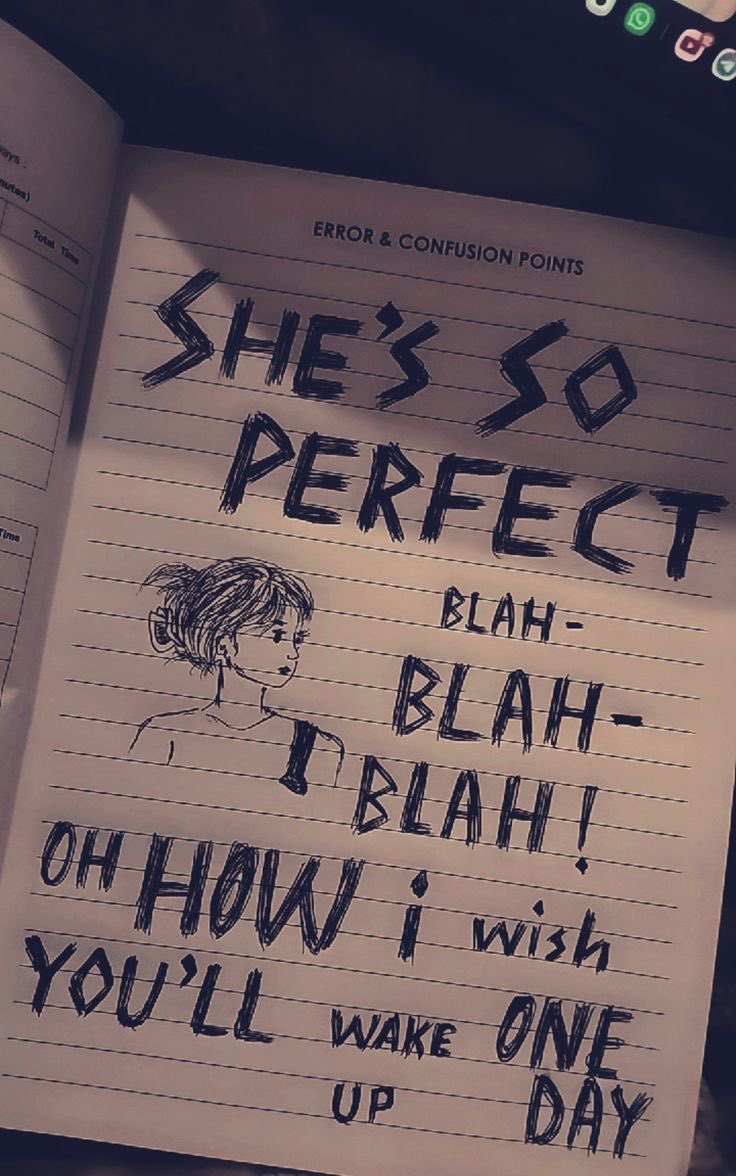 ays :
nutes)
Total Time
Time
ERROR & CONFUSION POINTS
SHE'S SO
PERFECT
BLAH-
BLAH-
BLAH!
OH HOW i wish
YOU'LL WAKE ONE
UP DAY